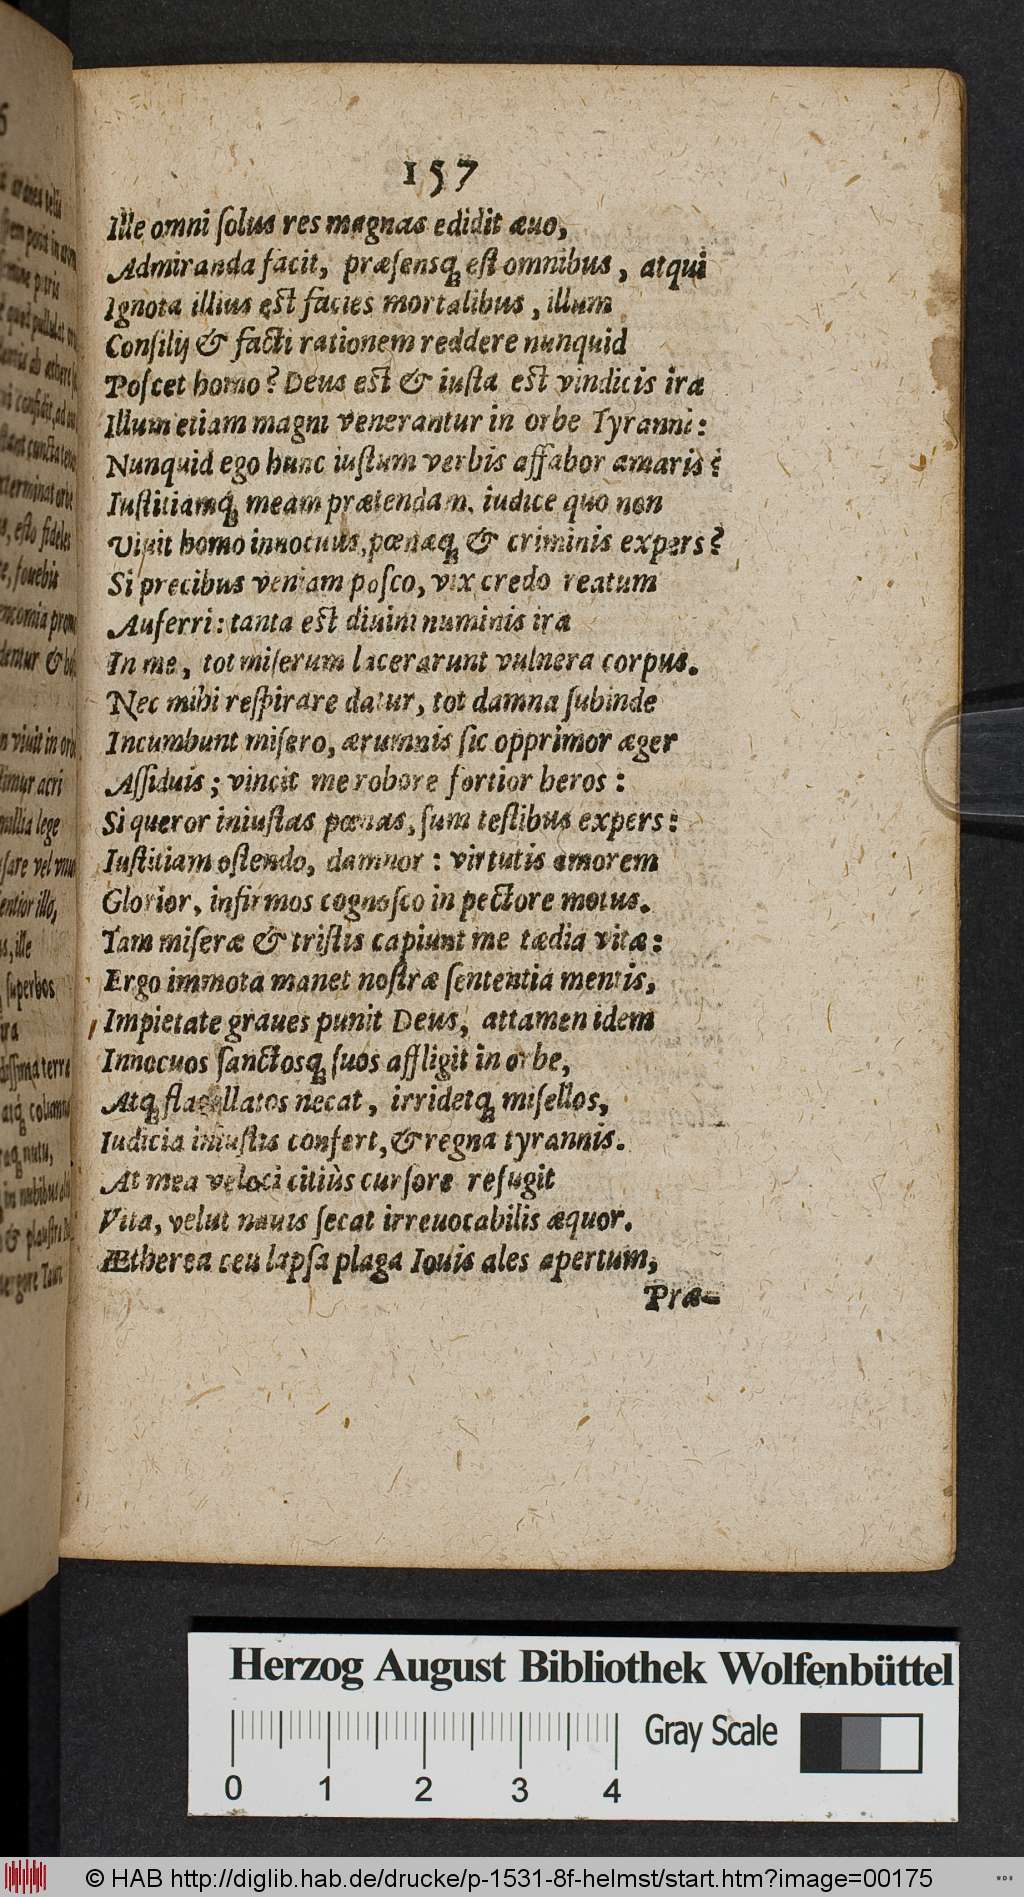 157
Ille omni ſolus res magnas edidit æuo,
Admiranda facit, præſensq́ꝫ eſt omnibus, atqui
Ignota illius est facies mortalibus, illum
Conſilij & facti rationem reddere nunquid
Poſcet homo? Deus est & iuſta est vindicis ira
Illum etiam magni venerantur in orbe Tyranni:
Nunquid ego hunc iuſtum verbis affabor amaris?
Iuſtitiamq́ꝫ meam prætendam, iudice quo non
Viuit homo innocuus, pœnæqꝫ & criminis expers?
Si precibus veniam poſco, vix credo reatum
Auferri: tanta est diuini numinis ira
In me, tot miſerum lacerarunt vulnera corpus.
Nec mihi reſpirare datur, tot damna ſubinde
Incumbunt miſero, ærumnis ſic opprimor æger
Aſſiduis; vincit me robore fortior heros:
Si queror iniuſtas pœnas, ſum teſtibus expers:
Iuſtitiam oſtendo, damnor: virtutis amorem
Glorior, infirmos cognoſco in pectore motus.
Tam miſeræ & triſtis capiunt me tædia vitæ:
Ergo immota manet noſtræ ſententia mentis,
Impietate graues punit Deus, attamen idem
Innocuos ſanctosqꝫ ſuos affligit in orbe,
Atqꝫ flagellatos necat, irridetqꝫ miſellos,
Iudicia iniuſtis confert, & regna tyrannis.
At mea veloci citiùs curſore refugit
Vita, velut nauis ſecat irreuocabilis æquor.
Ætherea ceu lapſa plaga Iouis ales apertum,
Præ-
Herzog August Bibliothek Wolfenbüttel
Gray Scale
0 1 2 3 4
© HAB http://diglib.hab.de/drucke/p-1531-8f-helmst/start.htm?image=00175